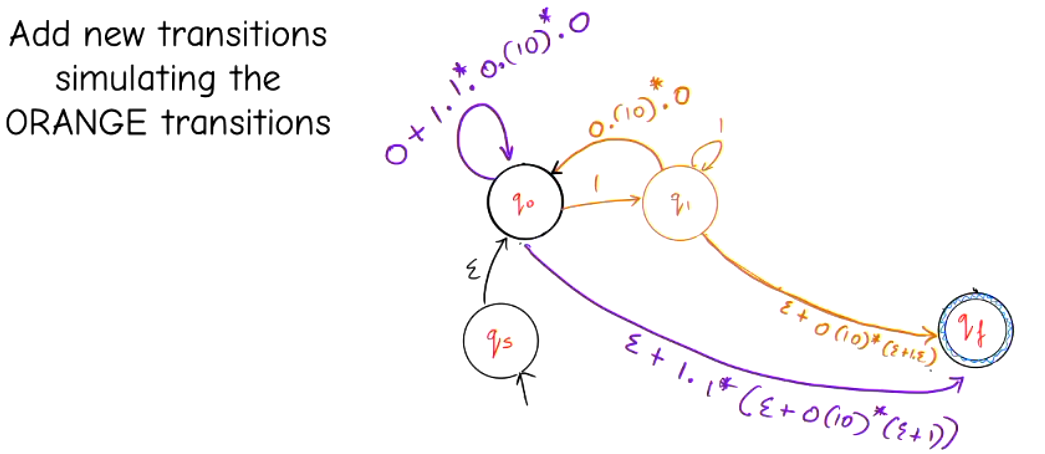 Add new transitions
simulating the
ORANGE transitions
0+1.1*.0.(10)*.0
0.(10)*.0
1
1
q₀
q₁
ε
qₛ
q_f
ε+0(10)*(ε+1.ε)
ε+1.1*(ε+0(10)*(ε+1))